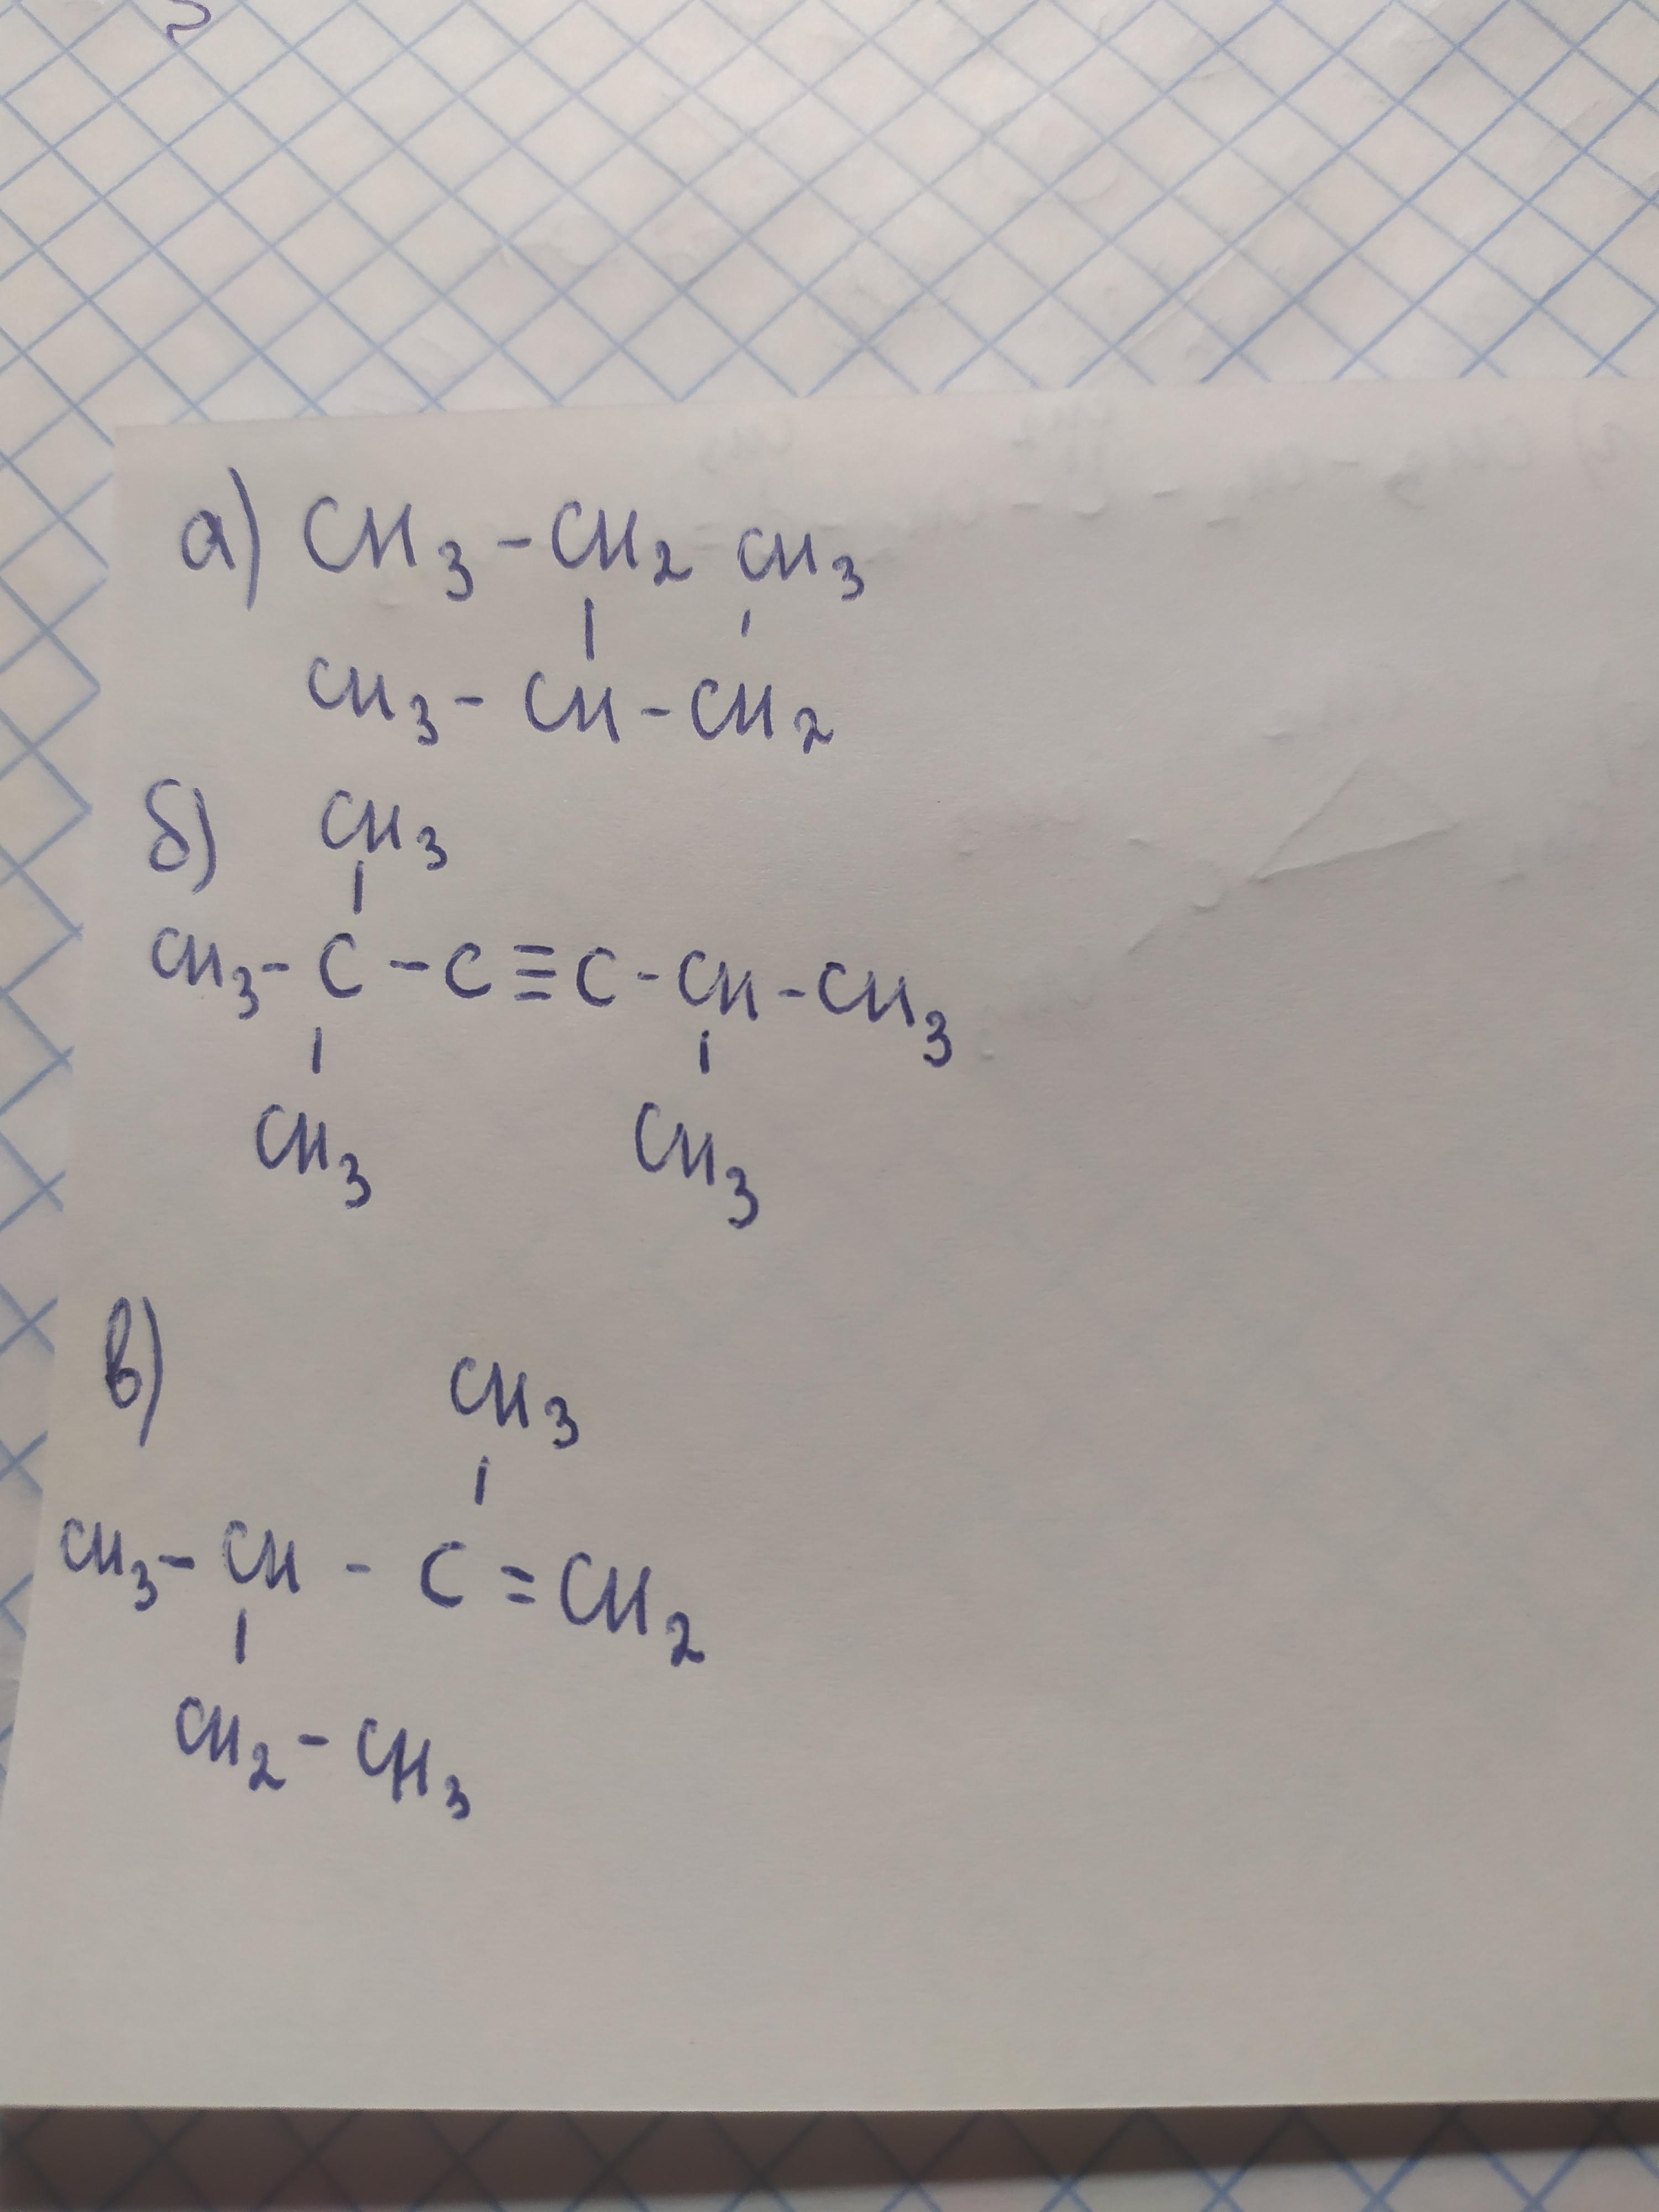 а) CH3 - CH2 CH3
| |
CH3 - CH - CH2
б) CH3
|
CH3 - C - C ≡ C - CH - CH3
| |
CH3 CH3
в)
CH3
|
CH3 - CH - C = CH2
|
CH2 - CH3